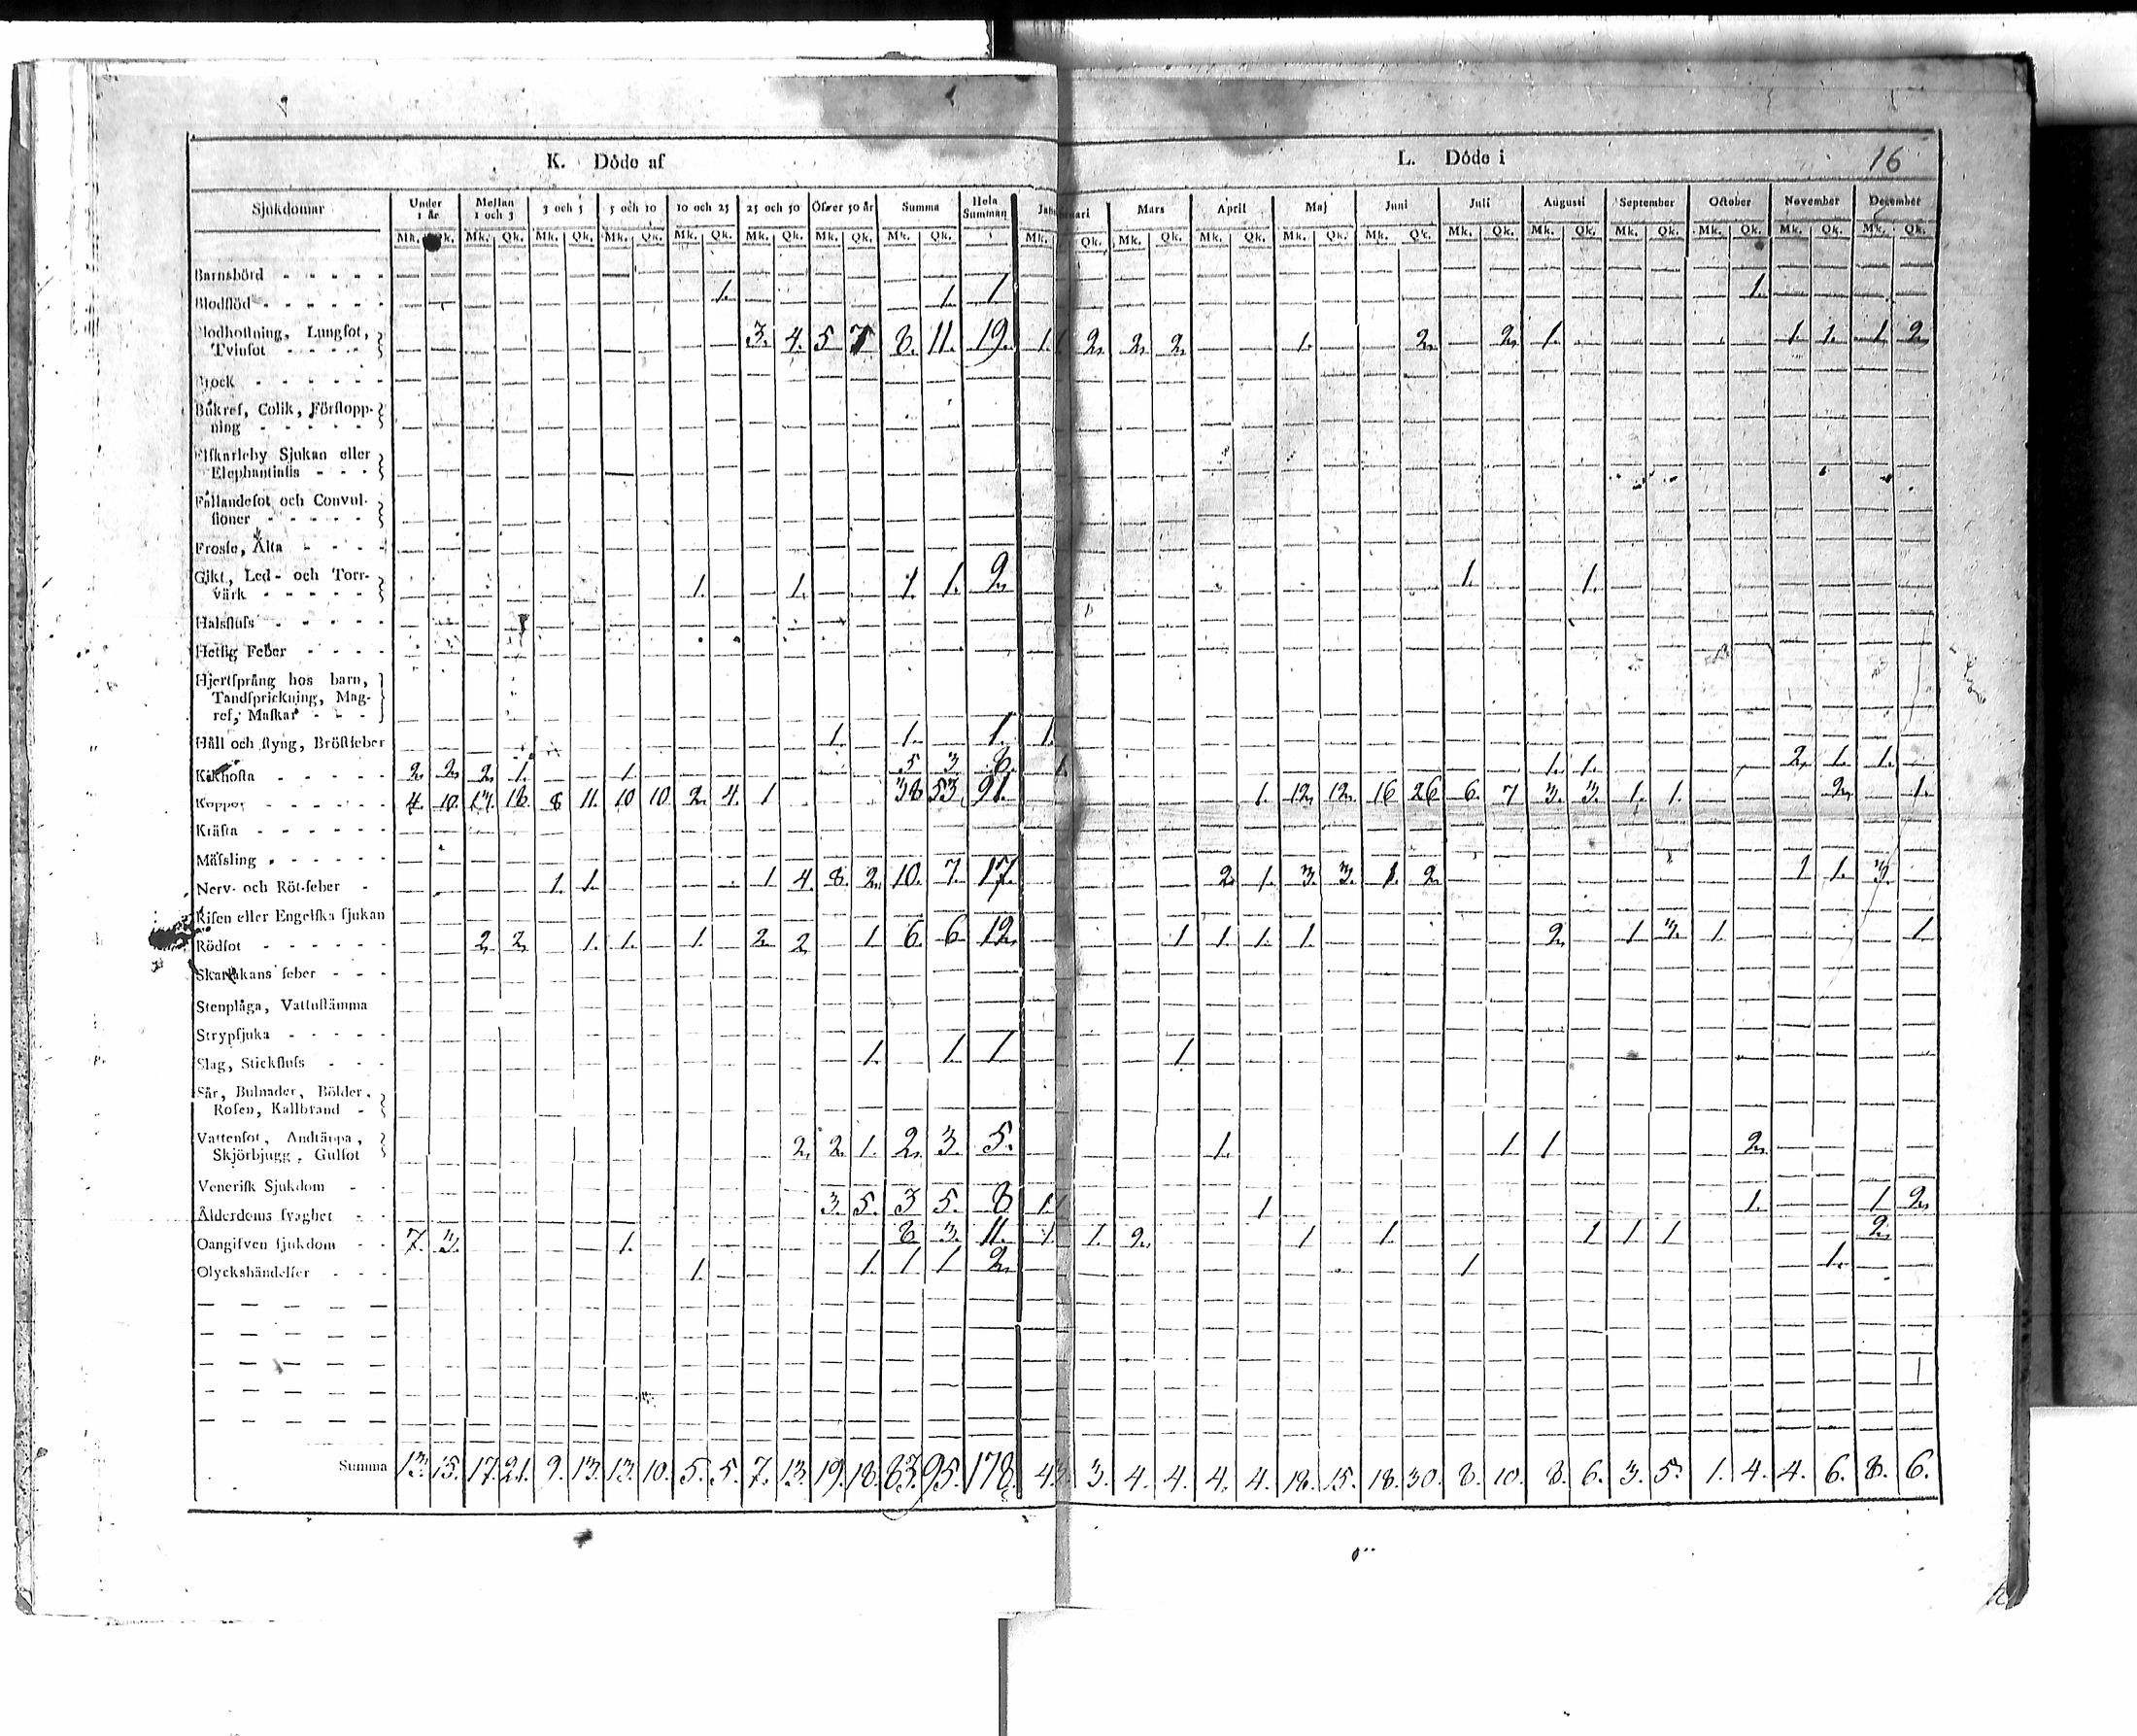 K. Döde af
L. Döde i 16
Sjukdomar Under 1 år Mellan 1 och 3 3 och 5 5 och 10 10 och 25 25 och 50 Öfver 50 år Summa Hela Summan Januari Mars April Maj Juni Juli Augusti September October November December
Mk. Qk. Mk. Qk. Mk. Qk. Mk. Qk. Mk. Qk. Mk. Qk. Mk. Qk. Mk. Qk. Mk. Qk. Mk. Qk. Mk. Qk. Mk. Qk. Mk. Qk. Mk. Qk. Mk. Qk. Mk. Qk. Mk. Qk. Mk. Qk. Mk. Qk.
Barnsbörd
Blodflöd 1. 1. 1 1.
Blodhostning, Lungsot,
Tvinsot 3. 4. 5 7 8. 11. 19. 1. 2. 2. 2. 1. 2. 2. 1. 1. 1. 1 2.
Brock
Bukref, Colik, Förstopp-
ning
Elfkarleby Sjukan eller
Elephantiasis
Fallandesot och Convul-
sioner
Frossa, Älta
Gikt, Led- och Torr-
värk 1. 1. 1. 1. 2. 1. 1.
Halsfluss
Hetsig Feber
Hjertsprång hos barn,
Tandsprickning, Mag-
ref, Maskar
Håll och styng, Bröstfeber 1. 1. 1. 1.
Kikhosta 2. 2. 2. 1. 1. 5 3. 6. 1. 1. 2. 1. 1.
Koppor 4. 10. 13. 18. 8 11. 10 10. 2. 4. 1 38 53. 91. 1. 12. 12. 16 26 6. 7 3. 3. 1. 1. 2. 1.
Kräfta
Mässling
Nerv- och Röt-feber 1. 1. 1 4. 8. 2. 10. 7. 17. 2. 1. 3. 3. 1. 2. 1 1. 3.
Risen eller Engelska sjukan
Rödsot 2. 2. 1. 1. 1. 2. 2. 1. 6. 6 12. 1 1. 1. 1. 2. 1 3. 1. 1
Skarlakans feber
Stenplåga, Vattustämma
Strypsjuka
Slag, Stickfluss 1. 1. 1 1
Sår, Bulnader, Bölder,
Rosen, Kallbrand
Vattensot, Andtäppa,
Skjörbjugg, Gulsot 2. 2. 1. 2. 3. 5. 1. 1 1 2.
Venerisk Sjukdom
Ålderdoms svaghet 3. 5. 3 5. 8 1. 1 1. 1 2.
Oangifven sjukdom 7. 3. 1. 8 3. 11. 1 1. 2. 1 1. 1 1 1 2.
Olyckshändelser 1. 1. 1 1 2. 1 1.
Summa 13. 15. 17. 21. 9. 13. 13. 10. 5. 5. 7. 13. 19. 18. 83. 95. 178. 4. 3. 4. 4. 4. 4. 18. 15. 18. 30. 8. 10. 8. 6. 3. 5. 1. 4. 4. 6. 8. 6.